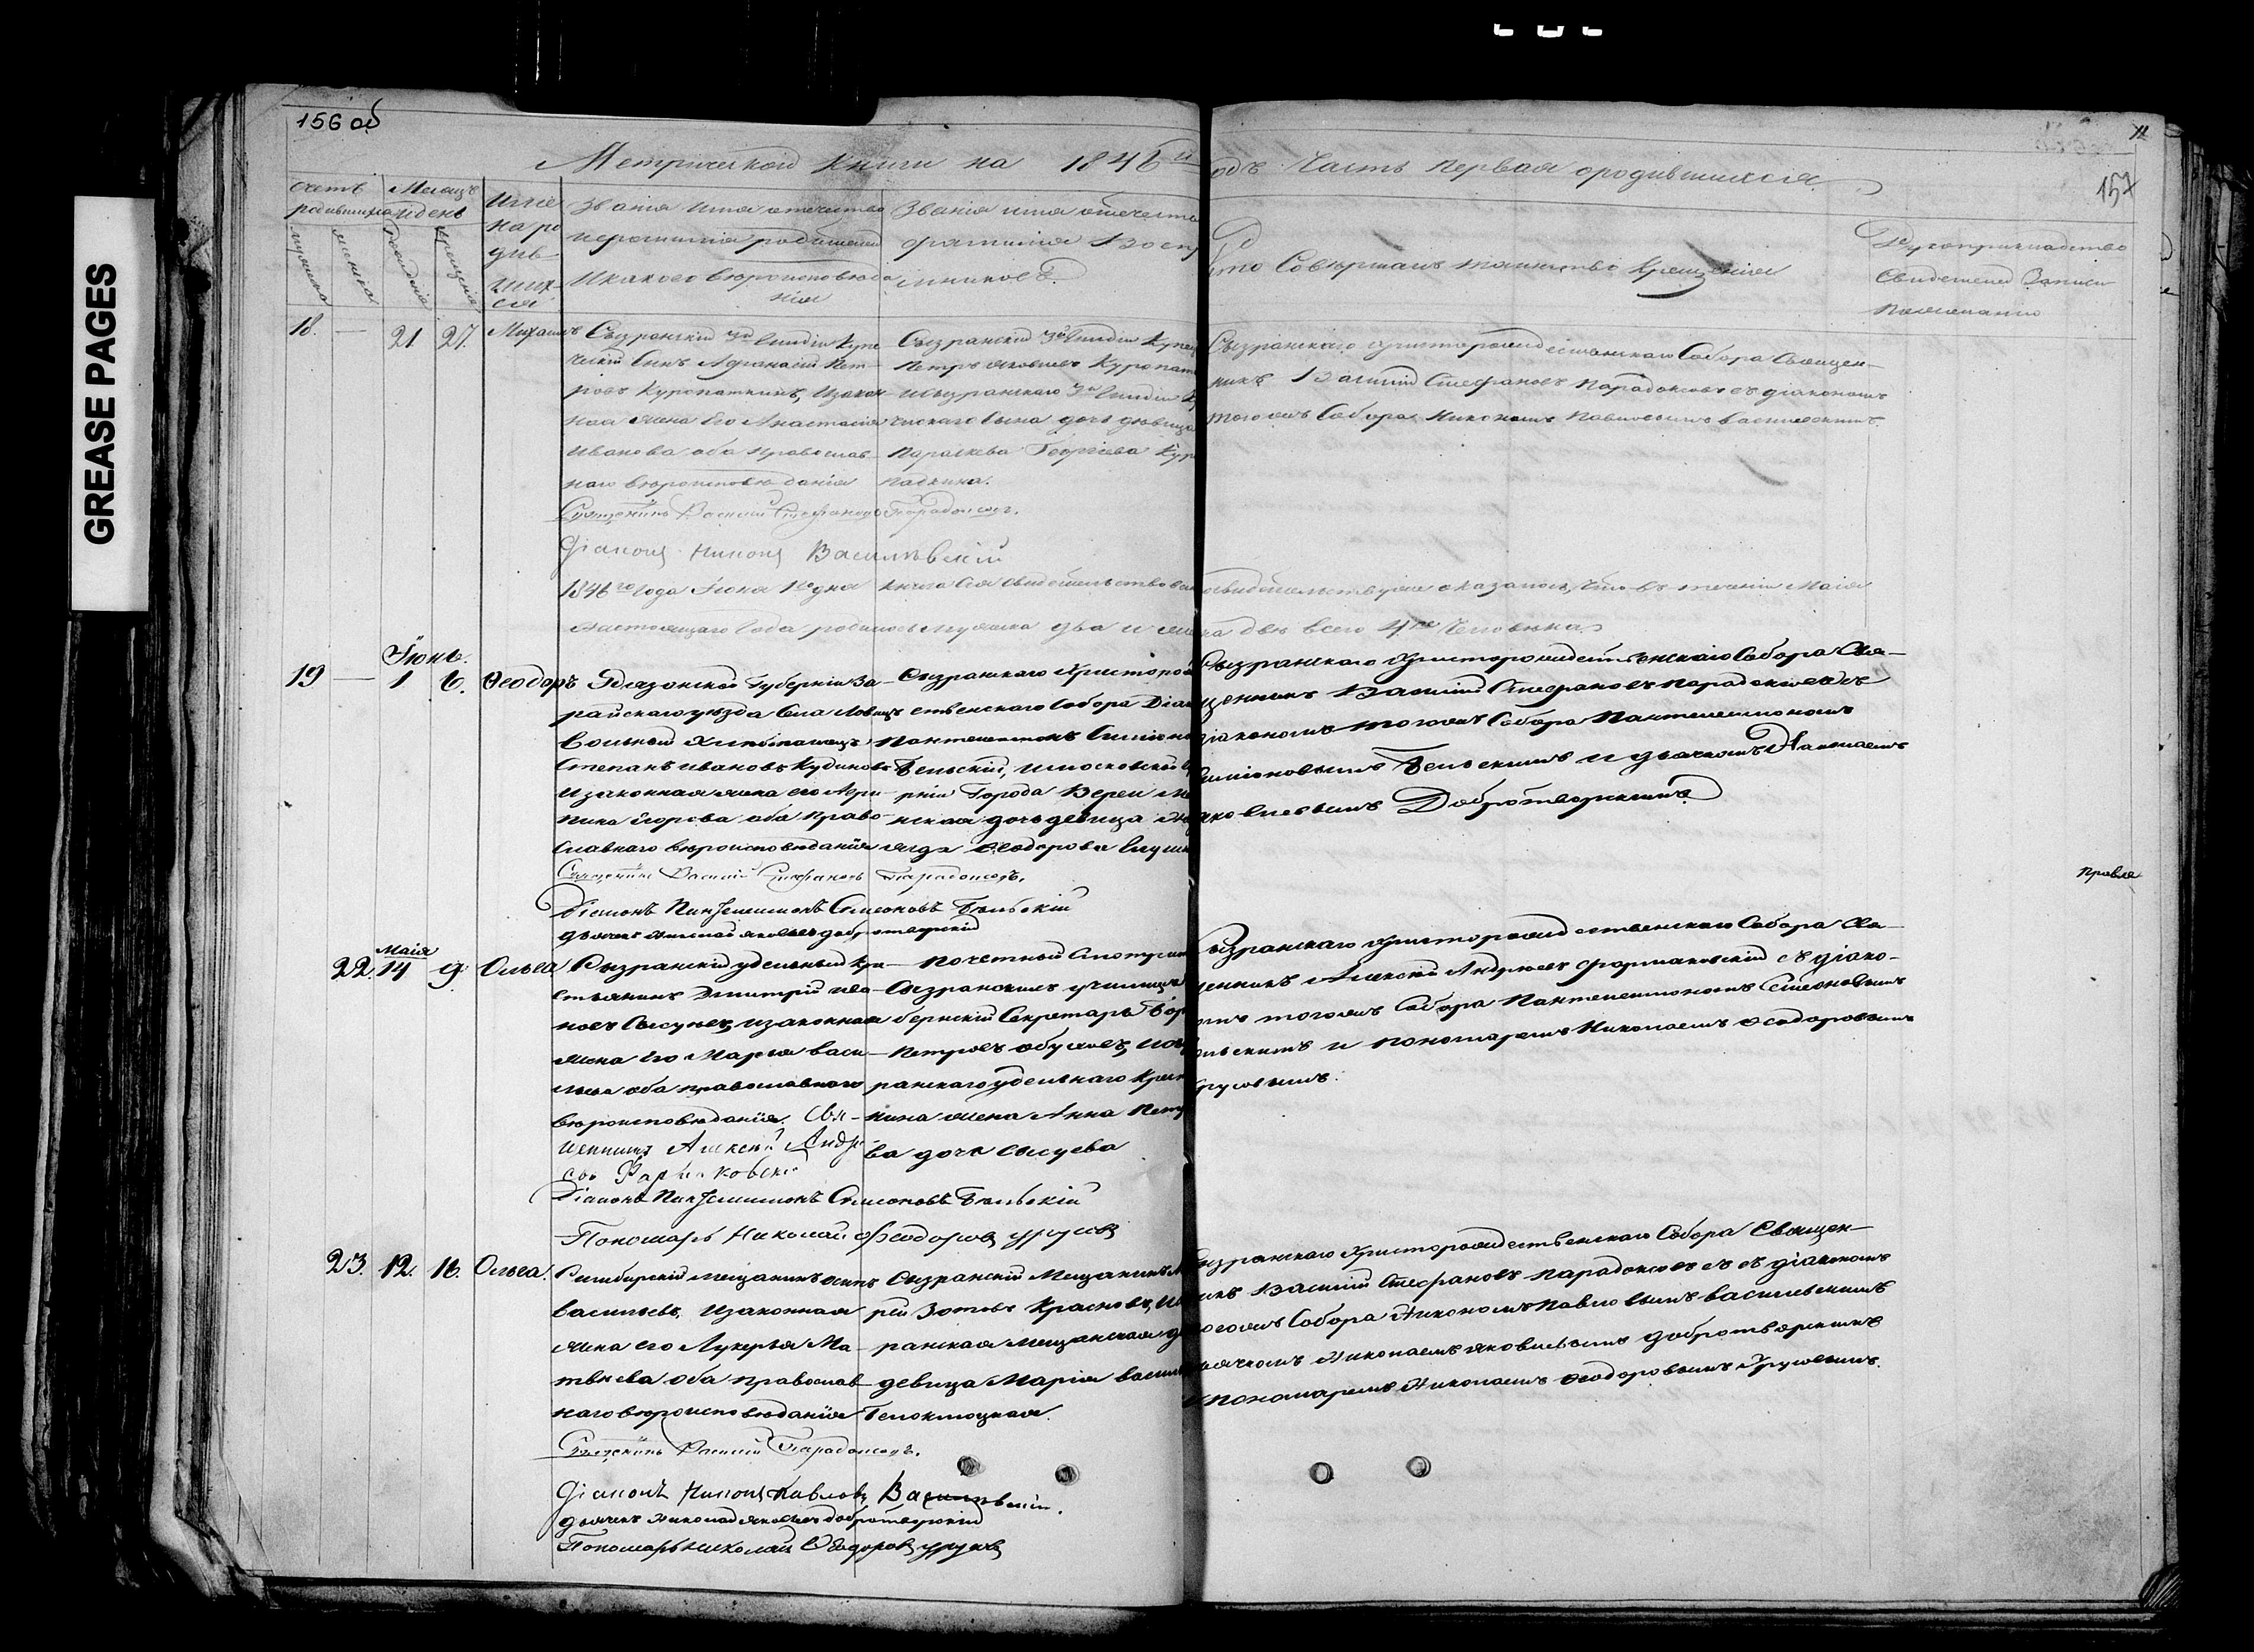 GREASE PAGES
156 об
11
157
Метрической книги на 1846й
одъ Часть первая ородившихся
счетъ родившихся
Месяцъ и день
мужеска
женска
рождения
крещения
Имена родившихся
Звание имя отечество
и фамилия родителей
и какого вероисповеда
ния
Звание имя отечеств
фамилия восп
мниковъ
Кто Совершалъ таинство Крещения
Рукоприкладство
Свидетелей Записи
По желанию
18. — 21. 27. Михаилъ
Сызранский 3й Гилдии Купе
ческий Сынъ Афанасий Пет-
ровъ Куропаткинъ, Изакон-
ная жена Его Анастасия
Иванова оба православ-
наго вероисповедания
Сызранский 3й Гилдии Купе
Петръ Куропат
и Сызранскаго 3й Гилдии К
ческаго Сына дочь девица
Параскева Георгиева Кур
паткина.
Сызранскаго Христорождественскаго Собора Священ-
никъ Василий Стефановъ Парадоксовъ съ діакономъ
тогожъ Собора Никономъ Павловымъ Василевскимъ.
Священникъ Василий Стефановъ Парадоксовъ.
Діаконъ Никонъ Василъвскій
1846го Года Июня 1го дня книга Сия Свидетельствован
освидетельствуя оказалось, что въ течении Маія
настоящаго Года родилось мужеска два и жен
ка две всего 4ре человека.
Іюнь.
19 — 1 6. Феодоръ
Рязанской Губернии За-
райскаго уезда Села Ловцъ
вольный Хлебопашецъ
Степанъ Ивановъ Кудиновъ
Изаконная жена его Агри-
пина Егорова оба право-
славнаго вероисповедания
Сызранскаго Христорож
ственскаго Собора Діак
Пантелеимонъ Симіонов
Бельский, и Московской Гу
рнии Города Вереи Ме
нская дочь девица
Феодорова
Сызранскаго Христорождественскаго Собора Свя-
щенникъ Василий Стефановъ Парадоксовъ съ
діакономъ тогожъ Собора Пантелеимономъ
Симіоновымъ Бельскимъ и дьячкомъ Николаемъ
Яковлевымъ Добротворскимъ
Священникъ Василий Стефановъ Парадоксовъ.
Діаконъ Пантелеимонъ Симеоновъ Бельскій
дьячекъ Николай Яковлевъ добротворский
правле
Маія
22. 14 9. Ольга
Сызранский удельный кре-
стьянинъ Дмитрий Ива-
новъ Сысуевъ, изаконная
жена его Марья Васи-
льева оба православнаго
вероисповедания. Свя-
щенникъ Алексей Андре
евъ Фармаковский
Почетный Смотрит
Сызранскихъ училищъ
бернский Секретарь
Петровъ
ранскаго удельнаго Крест
нина жена Анна Петр
ва дочь Сысуева
Сызранскаго Христорождественскаго Собора Свя-
щенникъ Алексей Андреевъ Фармаковский съ діако-
омъ тогожъ Собора Пантелеимономъ Симеоновымъ
ельскимъ и пономаремъ Николаемъ Феодоровымъ
русовымъ.
Діаконъ Пантелеимонъ Симеоновъ Бельскій
Пономарь Николай Феодоровъ Урусовъ
23. 12. 16. Ольга.
Симбирский мещанинъ
Васильевъ, Изаконная
жена его Лукерья Ма-
твеева оба православ-
наго вероисповедания
Сызранский Мещанинъ
рей Зотовъ Красновъ,
ранская мещанская д
девица Мария Василь
Белоклоцкая.
Сызранскаго Христорождественскаго Собора Священ-
икъ Василий Стефановъ Парадоксовъ съ діакономъ
тогожъ Собора Никономъ Павловымъ Василевскимъ
дьячкомъ Николаемъ Яковлевымъ Добротворскимъ
и пономаремъ Николаемъ Феодоровымъ Урусовымъ.
Священникъ Василий Парадоксовъ.
Діаконъ Никонъ Павловъ Василъвскій.
дьячекъ Николай Яковлевъ добротворский
Пономарь Николай Феодоровъ Урусовъ